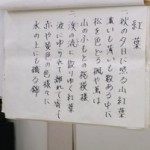 紅葉
「秋の夕日に照る山紅葉
濃いも薄いも数ある中に
松をいろどる楓や蔦は
山のふもとの裾模様
渓の流に散り浮く紅葉
波にゆられて離れて寄って
赤や黄色の色様々に
水の上にも織る錦」